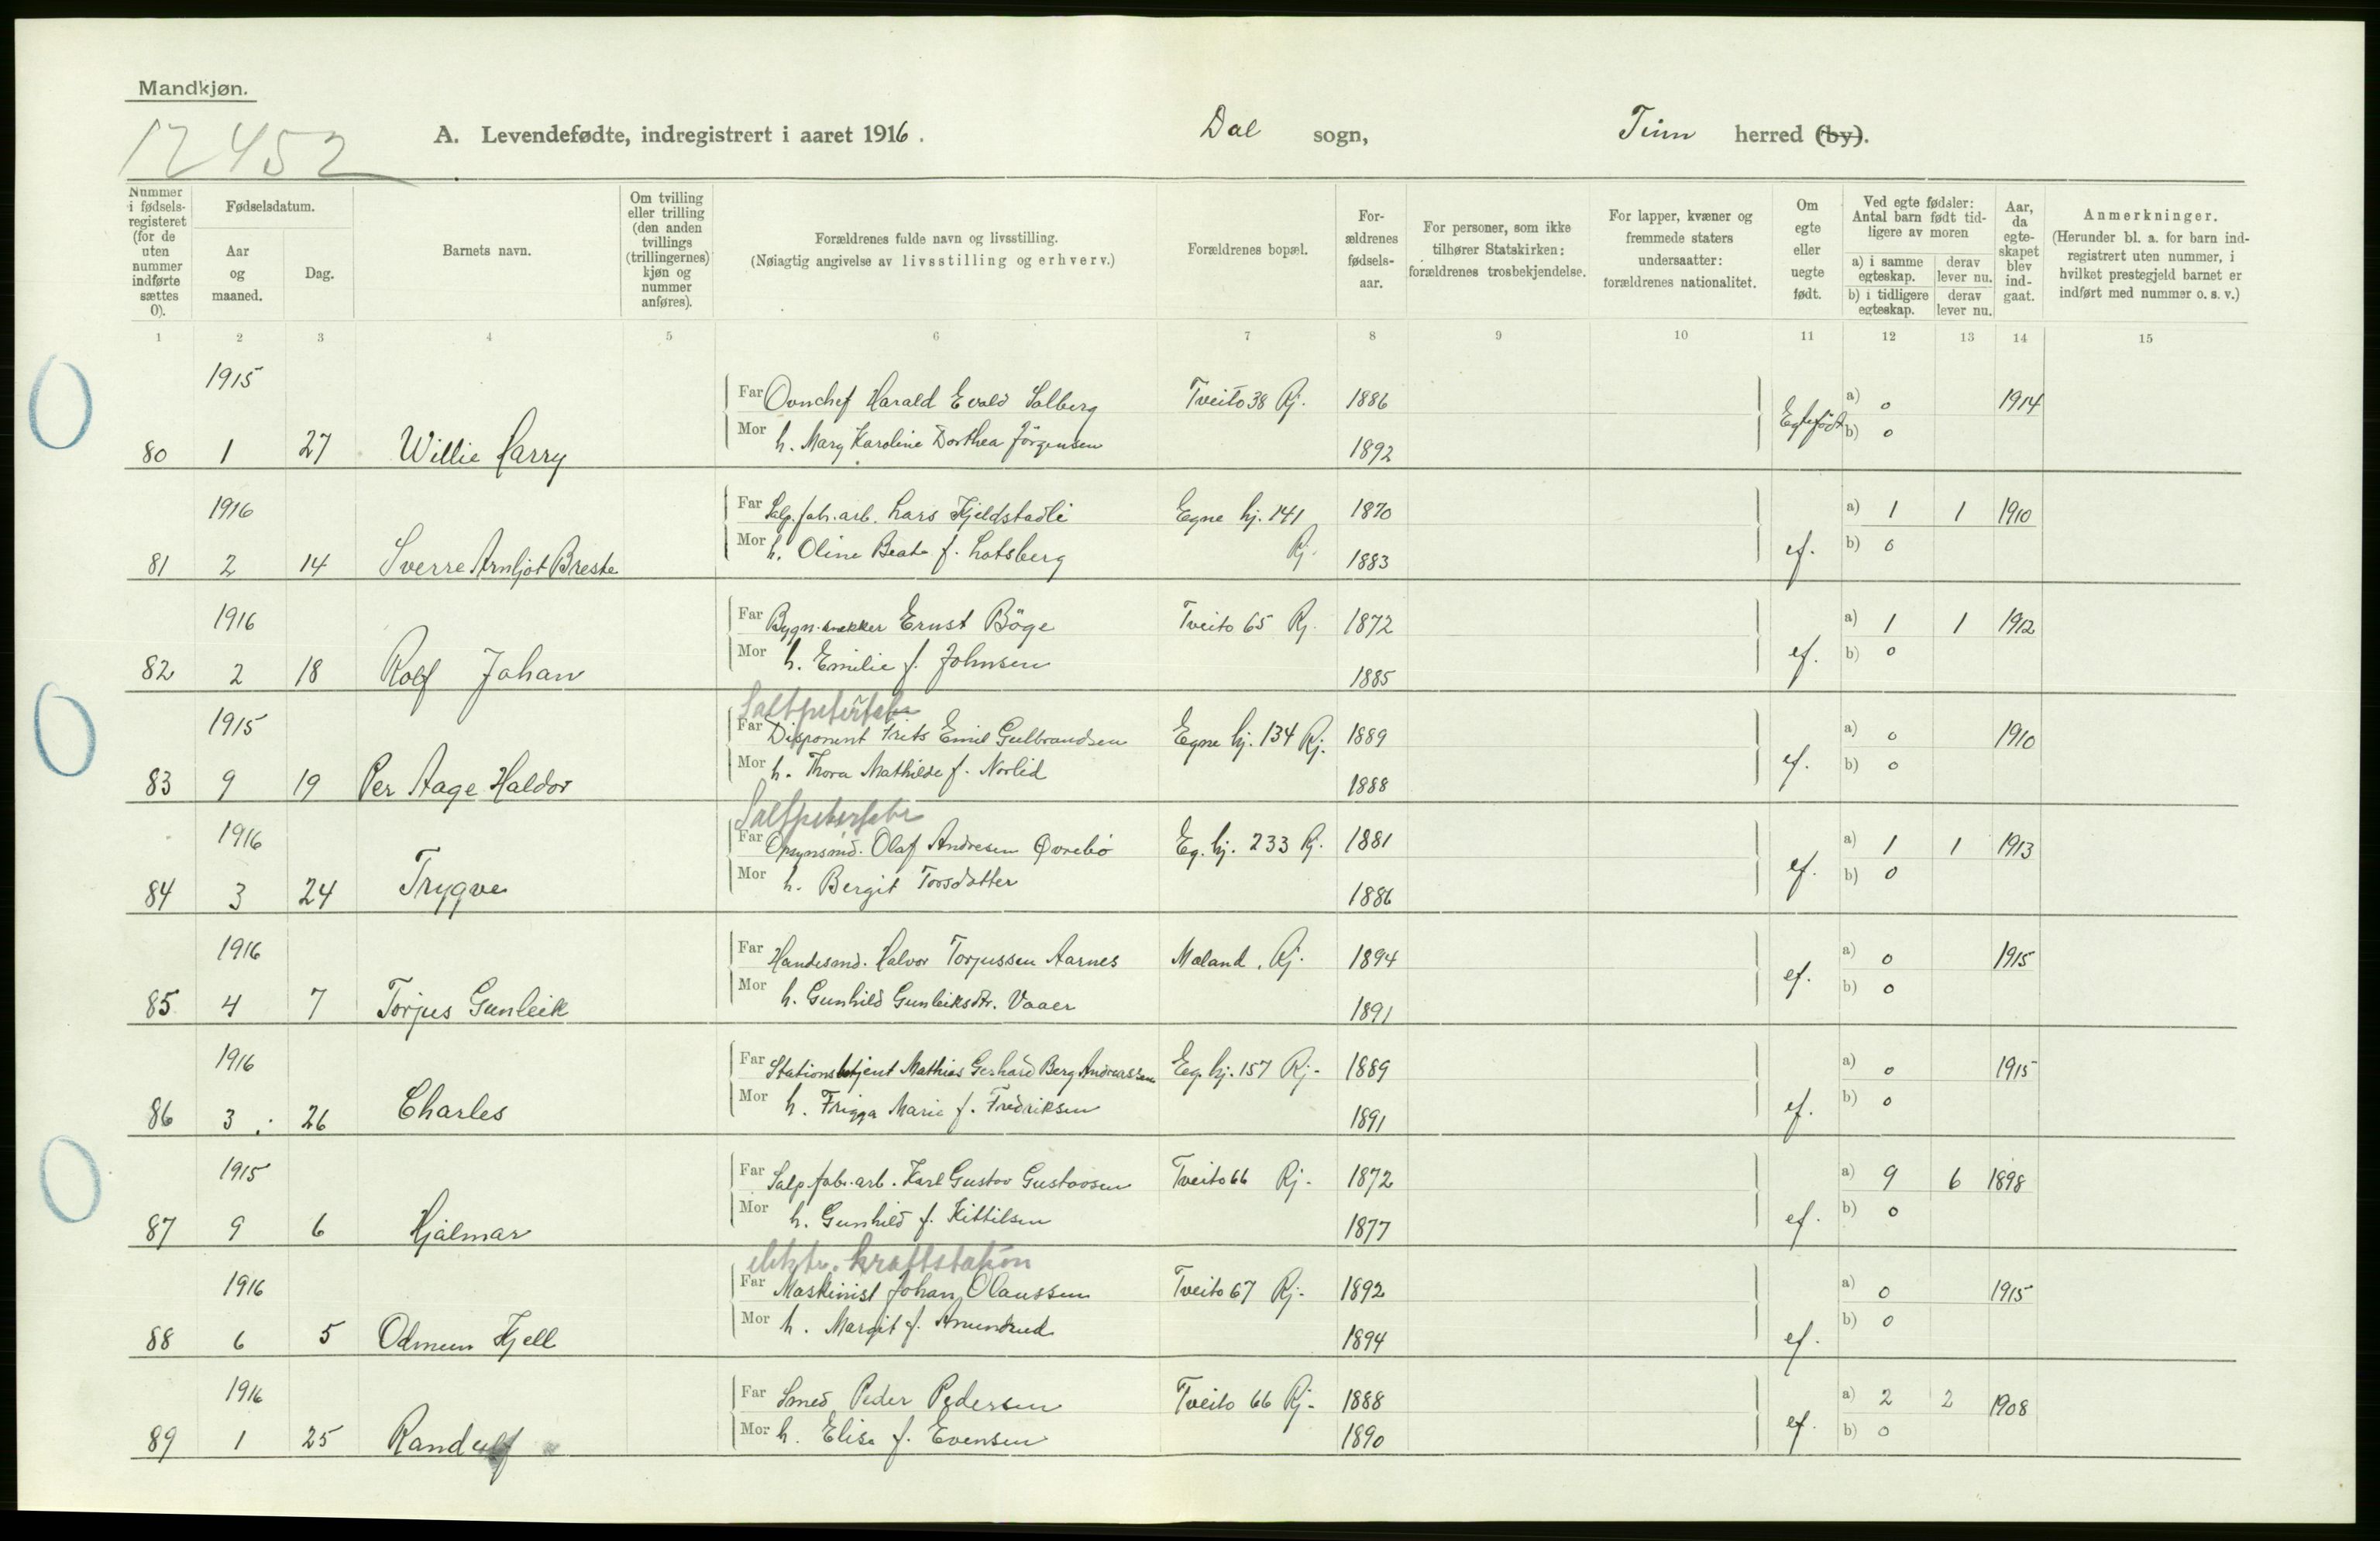 Mandkjøn.
12452
A. Levendefødte, indregistrert i aaret 1916. Dal sogn, Tinn herred (by).
Nummer i fødsels-registeret (for de uten nummer indførte sættes 0).
Fødselsdatum.
Aar og maaned.
Dag.
Barnets navn.
Om tvilling eller trilling (den anden tvillings (trillingernes) kjøn og nummer anføres).
Forældrenes fulde navn og livsstilling.
(Nøiagtig angivelse av livsstilling og erhverv.)
Forældrenes bopæl.
For-ældrenes fødsels-aar.
For personer, som ikke tilhører Statskirken: forældrenes trosbekjendelse.
For lapper, kvæner og fremmede staters undersaatter: forældrenes nationalitet.
Om egte eller uegte født.
Ved egte fødsler: Antal barn født tid-ligere av moren
a) i samme egteskap. derav lever nu.
b) i tidligere egteskap. derav lever nu.
Aar, da egte-skapet blev ind-gaat.
Anmerkninger.
(Herunder bl. a. for barn ind-registrert uten nummer, i hvilket prestegjeld barnet er indført med nummer o. s. v.)
1 2 3 4 5 6 7 8 9 10 11 12 13 14 15
0
1915
Far Ovnchef Harald Evald Solberg Tveito 38 Rj. 1886 Egtefødt a) 0 1914
Mor h. Mary Karoline Dorthea Jörgensen 1892 b) 0
80 1 27 Willie Harry
1916
Far Salp.fabr.arb. Lars Fjeldstadli Egne hj. 141 1870 a) 1 1 1910
Mor h. Oline Beate f. Lotsberg Rj. 1883 ef. b) 0
81 2 14 Sverre Arnljot Breste
1916
Far Bygn.snekker Ernst Böge Tveito 65 Rj. 1872 a) 1 1 1912
Mor h. Emilie f. Johnsen 1885 ef. b) 0
82 2 18 Rolf Johan
0
1915
Saltpeterfabr
Far Disponent Frits Emil Gulbrandsen Egne hj. 134 Rj. 1889 a) 0 1910
Mor h. Thora Mathilde f. Norlid 1888 ef. b) 0
83 9 19 Per Aage Haldor
1916
Saltpeterfabr
Far Opsynsmd. Olaf Andresen Øvrebö Eg. hj. 233 Rj. 1881 a) 1 1 1913
Mor h. Bergit Torsdatter 1886 ef. b) 0
84 3 24 Trygve
1916
Far Handesmd. Halvor Torjussen Aarnes Mæland. Rj. 1894 a) 0 1915
Mor h. Gunhild Gunleiksdtr. Vaaer 1891 ef. b) 0
85 4 7 Torjus Gunleik
1916
Far Stationsbetjent Mathias Gerhard Berg Andreassen Eg. hj. 157 Rj. 1889 a) 0 1915
Mor h. Frigga Marie f. Fredriksen 1891 ef. b) 0
86 3 26 Charles
0
1915
Far Salp.fabr.arb. Karl Gustav Gustavsen Tveito 66 Rj. 1872 a) 9 6 1898
Mor h. Gunhild f. Kittilsen 1877 ef. b) 0
87 9 6 Hjalmar
1916
elektr. kraftstation
Far Maskinist Johan Olaussen Tveito 67 Rj. 1892 a) 0 1915
Mor h. Margit f. Amundrud 1894 ef. b) 0
88 6 5 Odmun Kjell
1916
Far Smed Peder Pedersen Tveito 66 Rj. 1888 a) 2 2 1908
Mor h. Elise f. Evensen 1890 ef. b) 0
89 1 25 Randulf